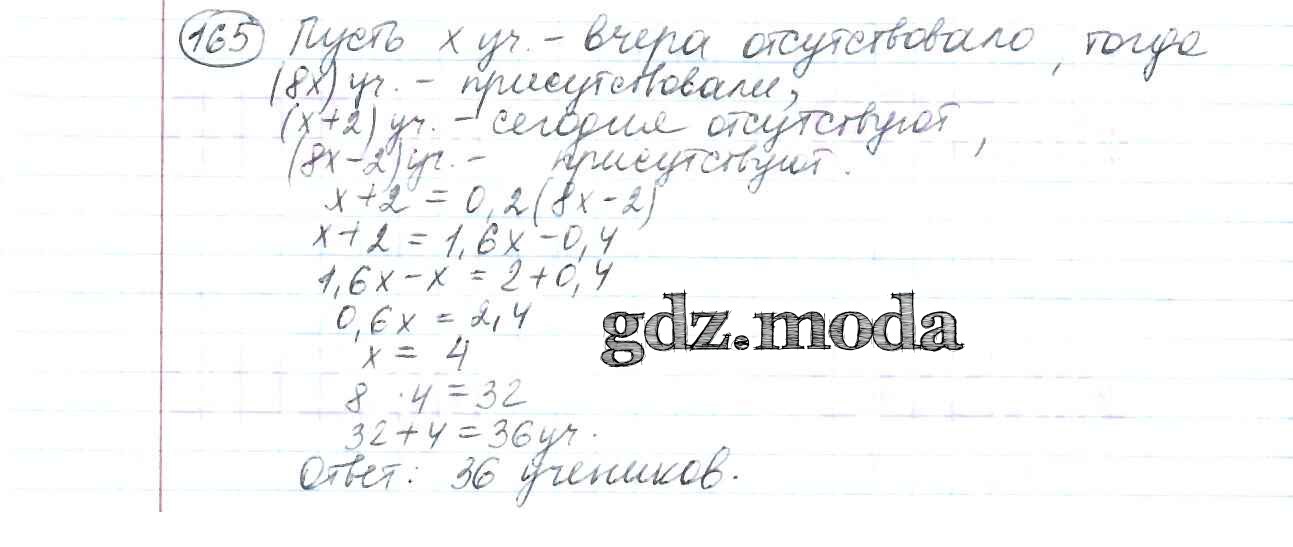 165 Пусть x уч. - вчера отсутствовало, тогда
(8x) уч. - присутствовали,
(x+2) уч. - сегодня отсутствуют,
(8x-2) уч. - присутствуют.
x+2 = 0,2(8x-2)
x+2 = 1,6x-0,4
1,6x-x = 2+0,4
0,6x = 2,4
gdz.moda
x = 4
8 · 4 = 32
32+4=36 уч.
Ответ: 36 учеников.